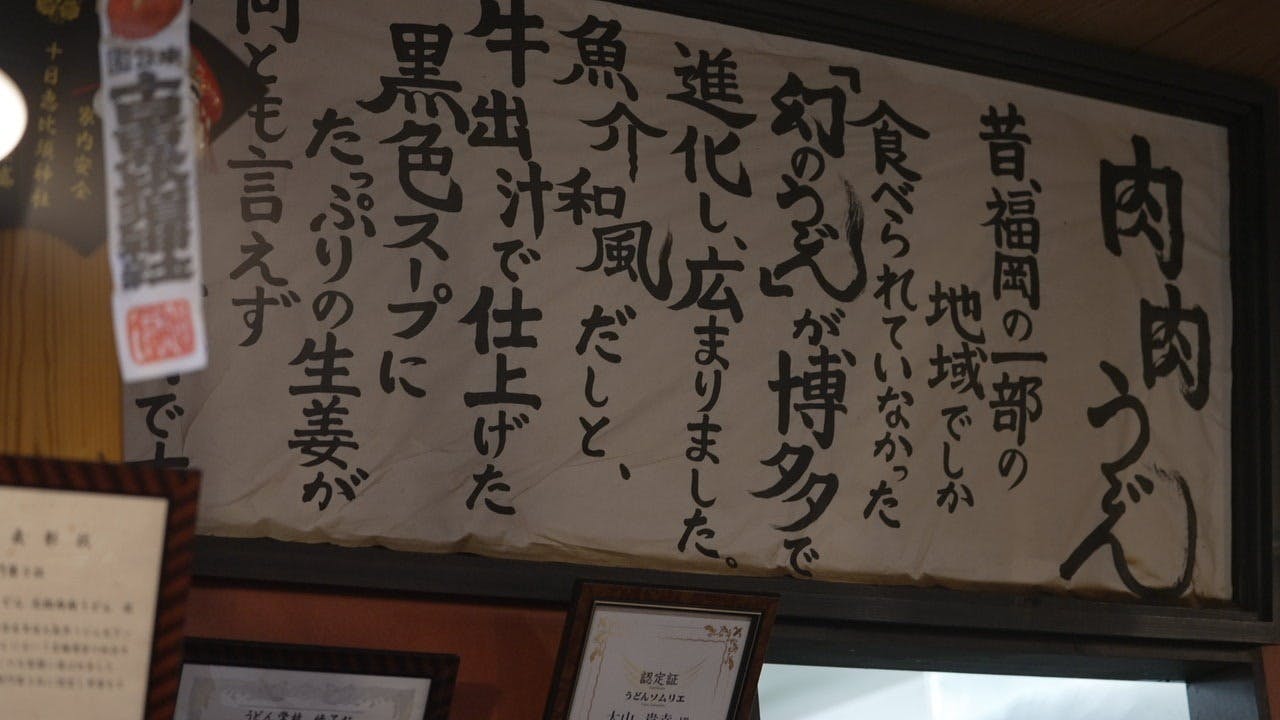 肉肉うどん
昔、福岡の一部の
地域でしか
食べられていなかった
「幻のうどん」が博多で
進化し、広まりました。
魚介和風だしと、
牛出汁で仕上げた
黒色スープに
たっぷりの生姜が
何とも言えず
で
十日恵比須神社
家内安全
表彰状
認定証
うどんソムリエ